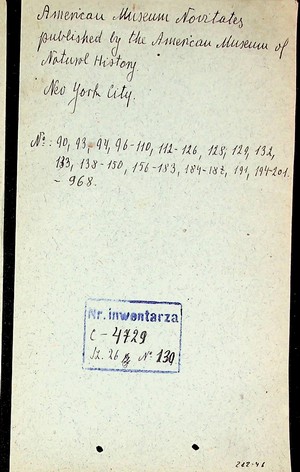 American Museum Novitates
published by the American Museum of
Natural History
New York City.
Nº: 90, 93, 94, 96-110, 112-126, 128, 129, 132,
133, 138-150, 156-183, 184-187, 191, 194-201.
- 968.
Nr. inwentarza
C-4729
Sz. 26 Nº 139
202-46